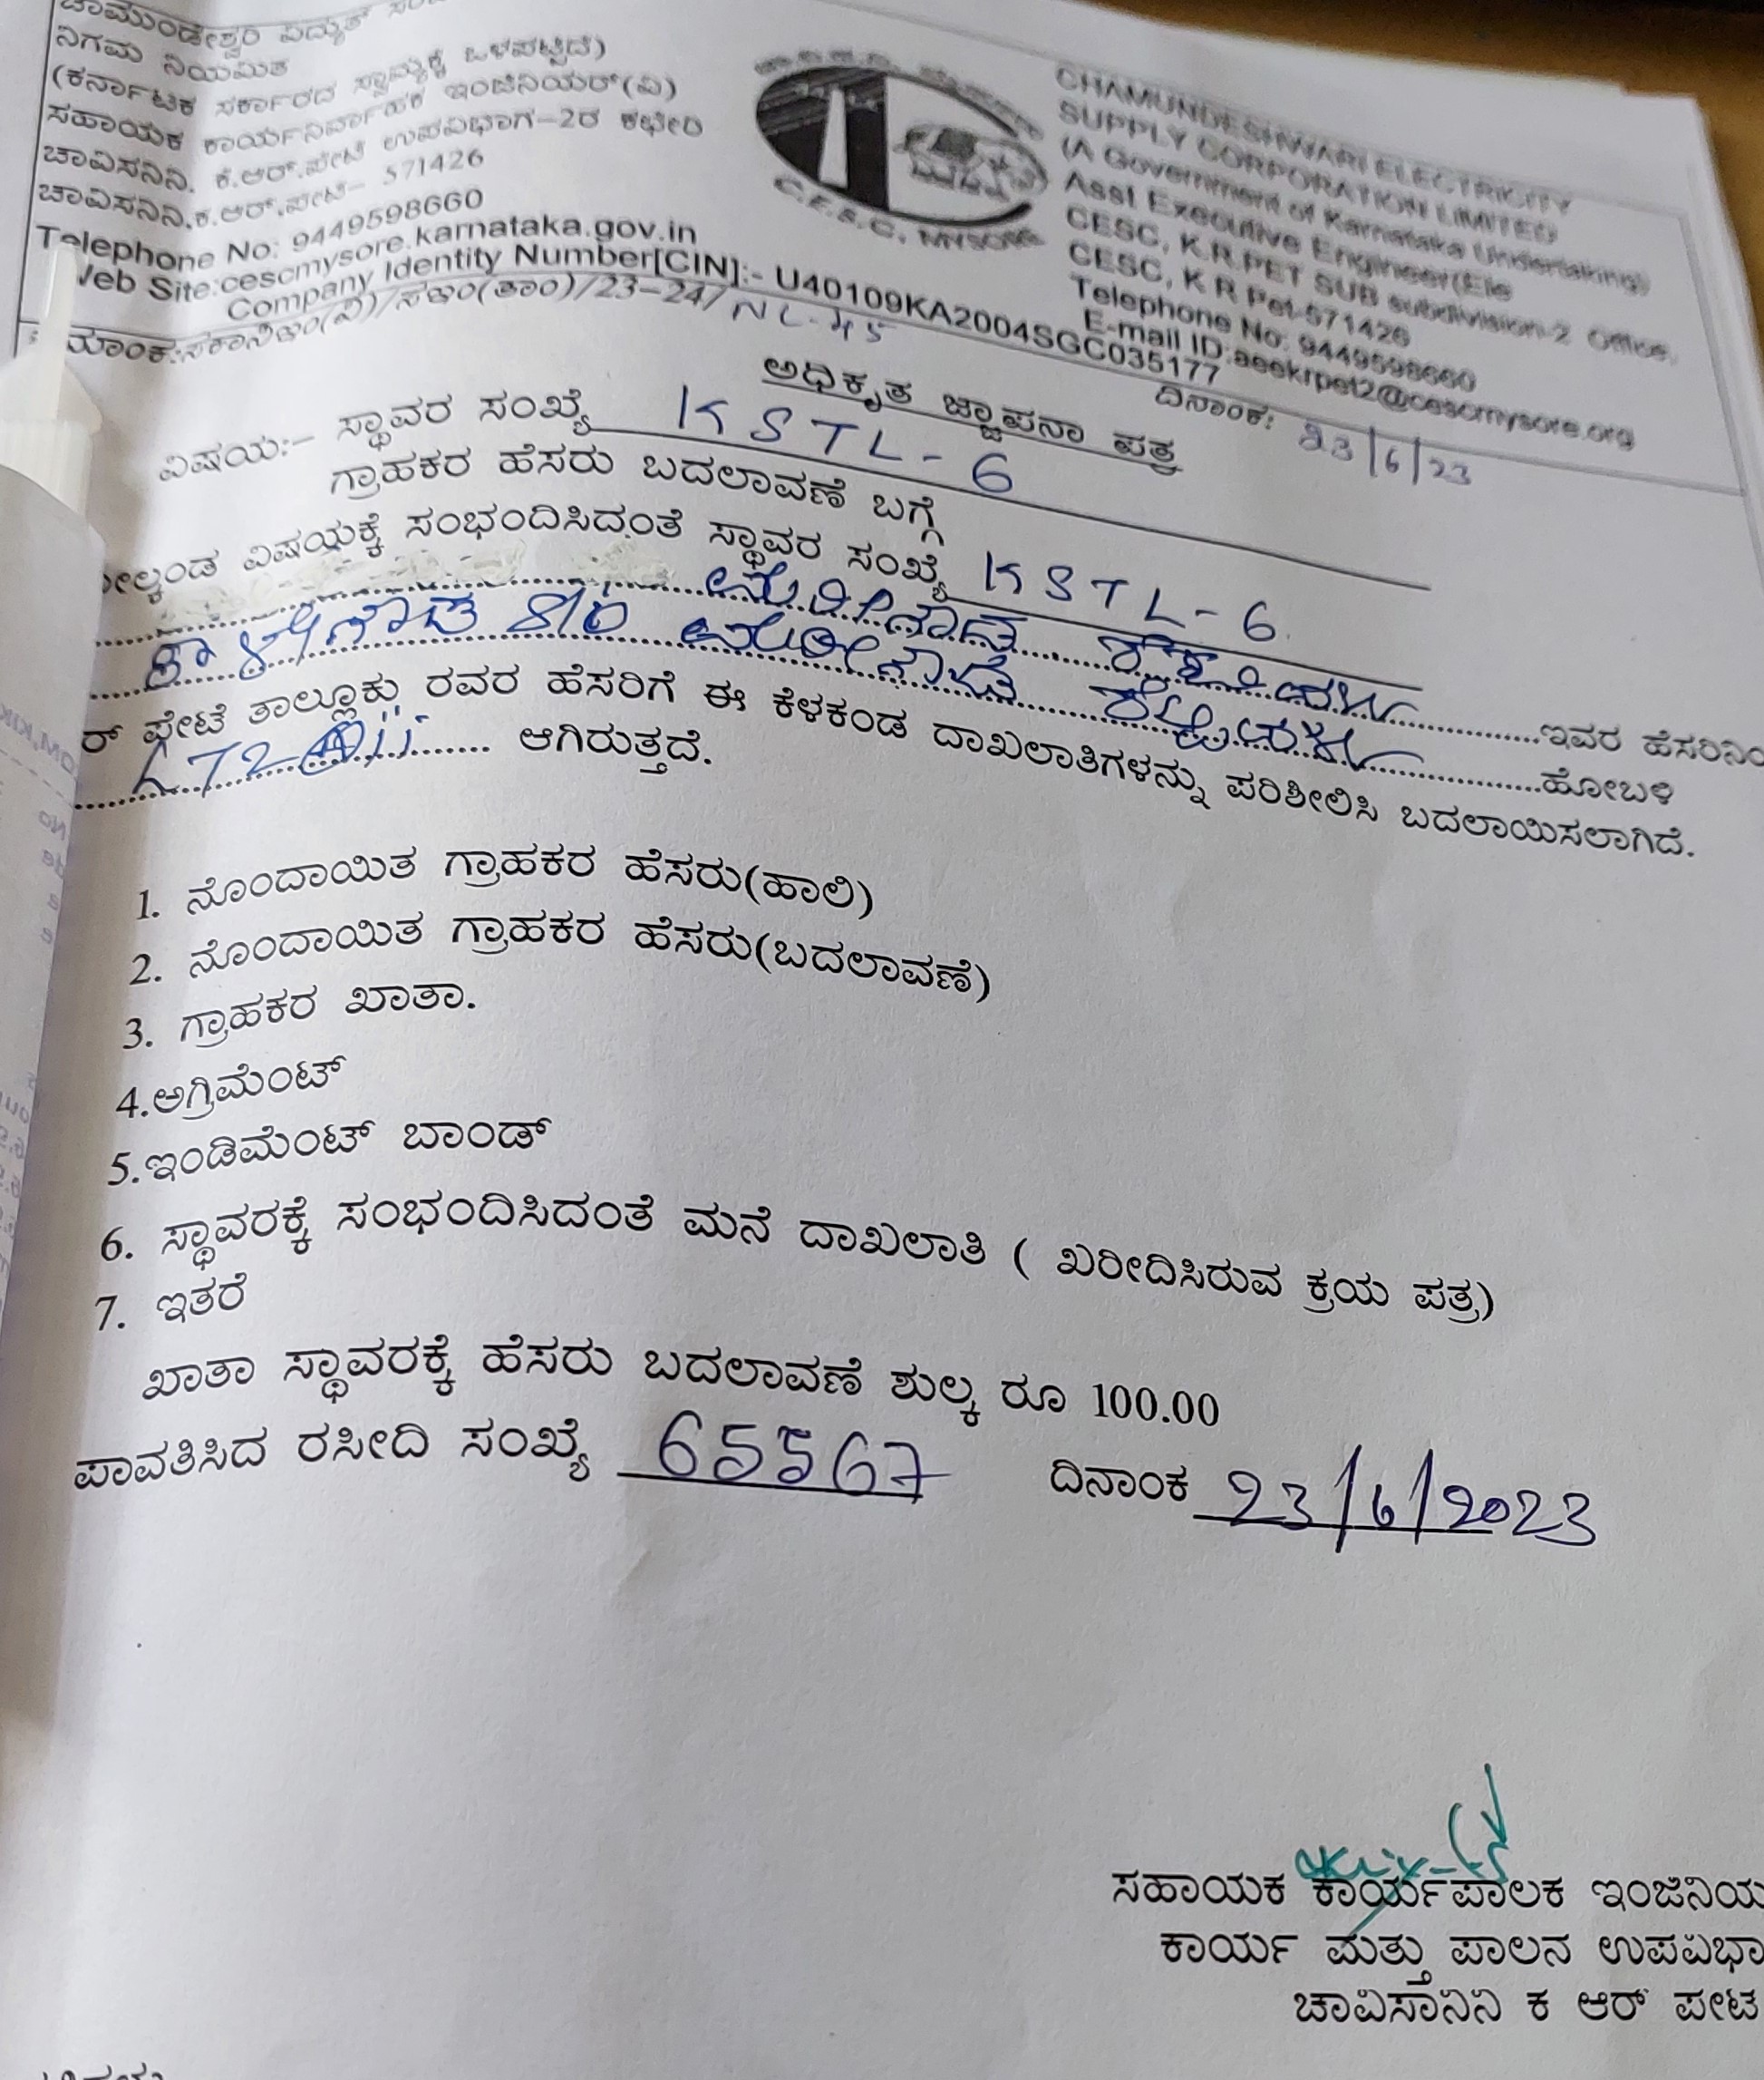 ಚಾಮುಂಡೇಶ್ವರಿ ವಿದ್ಯುತ್
ನಿಗಮ ನಿಯಮಿತ
(ಕರ್ನಾಟಕ ಸರ್ಕಾರದ ಸ್ವಾಮ್ಯಕ್ಕೆ ಒಳಪಟ್ಟಿದೆ)
ಸಹಾಯಕ ಕಾರ್ಯನಿರ್ವಾಹಕ ಇಂಜಿನಿಯರ್(ವಿ)
ಚಾವಿಸನಿನಿ. ಕೆ.ಆರ್.ಪೇಟೆ ಉಪವಿಭಾಗ-2ರ ಕಛೇರಿ
ಚಾವಿಸನಿನಿ,ಕ.ಆರ್.ಪೇಟೆ- 571426
Telephone No: 9449598660
Web Site:cescmysore.karnataka.gov.in
C.E.S.C, MYSORE
CHAMUNDESHWARI ELECTRICITY
SUPPLY CORPORATION LIMITED
(A Government of Karnataka Undertaking)
Asst Executive Engineer(Ele
CESC, K.R.PET SUB subdivision-2 Office,
CESC, K R Pet-571426
Telephone No: 9449598660
E-mail ID:aeekrpet2@cescmysore.org
Company Identity Number[CIN]:- U40109KA2004SGC035177
ಮಾಂಕ:ಸಕಾನಿಇಂ(ವಿ)/ಸಇಂ(ತಾಂ)/23-24/ NL-45 ದಿನಾಂಕ: 23/6/23
ಅಧಿಕೃತ ಜ್ಞಾಪನಾ ಪತ್ರ
ವಿಷಯ:- ಸ್ಥಾವರ ಸಂಖ್ಯೆ KSTL-6
ಗ್ರಾಹಕರ ಹೆಸರು ಬದಲಾವಣೆ ಬಗ್ಗೆ
ಮೇಲ್ಕಂಡ ವಿಷಯಕ್ಕೆ ಸಂಭಂದಿಸಿದಂತೆ ಸ್ಥಾವರ ಸಂಖ್ಯೆ KSTL-6
ಇವರ ಹೆಸರಿನಿಂ
ಕಾಳೇಗೌಡ S/o ಹೋಬಳಿ
ರ್ ಪೇಟೆ ತಾಲ್ಲೂಕು ರವರ ಹೆಸರಿಗೆ ಈ ಕೆಳಕಂಡ ದಾಖಲಾತಿಗಳನ್ನು ಪರಿಶೀಲಿಸಿ ಬದಲಾಯಿಸಲಾಗಿದೆ.
ಆಗಿರುತ್ತದೆ.
1. ನೊಂದಾಯಿತ ಗ್ರಾಹಕರ ಹೆಸರು(ಹಾಲಿ)
2. ನೊಂದಾಯಿತ ಗ್ರಾಹಕರ ಹೆಸರು(ಬದಲಾವಣೆ)
3. ಗ್ರಾಹಕರ ಖಾತಾ.
4.ಅಗ್ರಿಮೆಂಟ್
5.ಇಂಡಿಮೆಂಟ್ ಬಾಂಡ್
6. ಸ್ಥಾವರಕ್ಕೆ ಸಂಭಂದಿಸಿದಂತೆ ಮನೆ ದಾಖಲಾತಿ ( ಖರೀದಿಸಿರುವ ಕ್ರಯ ಪತ್ರ)
7. ಇತರೆ
ಖಾತಾ ಸ್ಥಾವರಕ್ಕೆ ಹೆಸರು ಬದಲಾವಣೆ ಶುಲ್ಕ ರೂ 100.00
ಪಾವತಿಸಿದ ರಸೀದಿ ಸಂಖ್ಯೆ 65567 ದಿನಾಂಕ 23/6/2023
ಸಹಾಯಕ ಕಾರ್ಯಪಾಲಕ ಇಂಜಿನಿಯ
ಕಾರ್ಯ ಮತ್ತು ಪಾಲನ ಉಪವಿಭಾ
ಚಾವಿಸಾನಿನಿ ಕ ಆರ್ ಪೇಟ